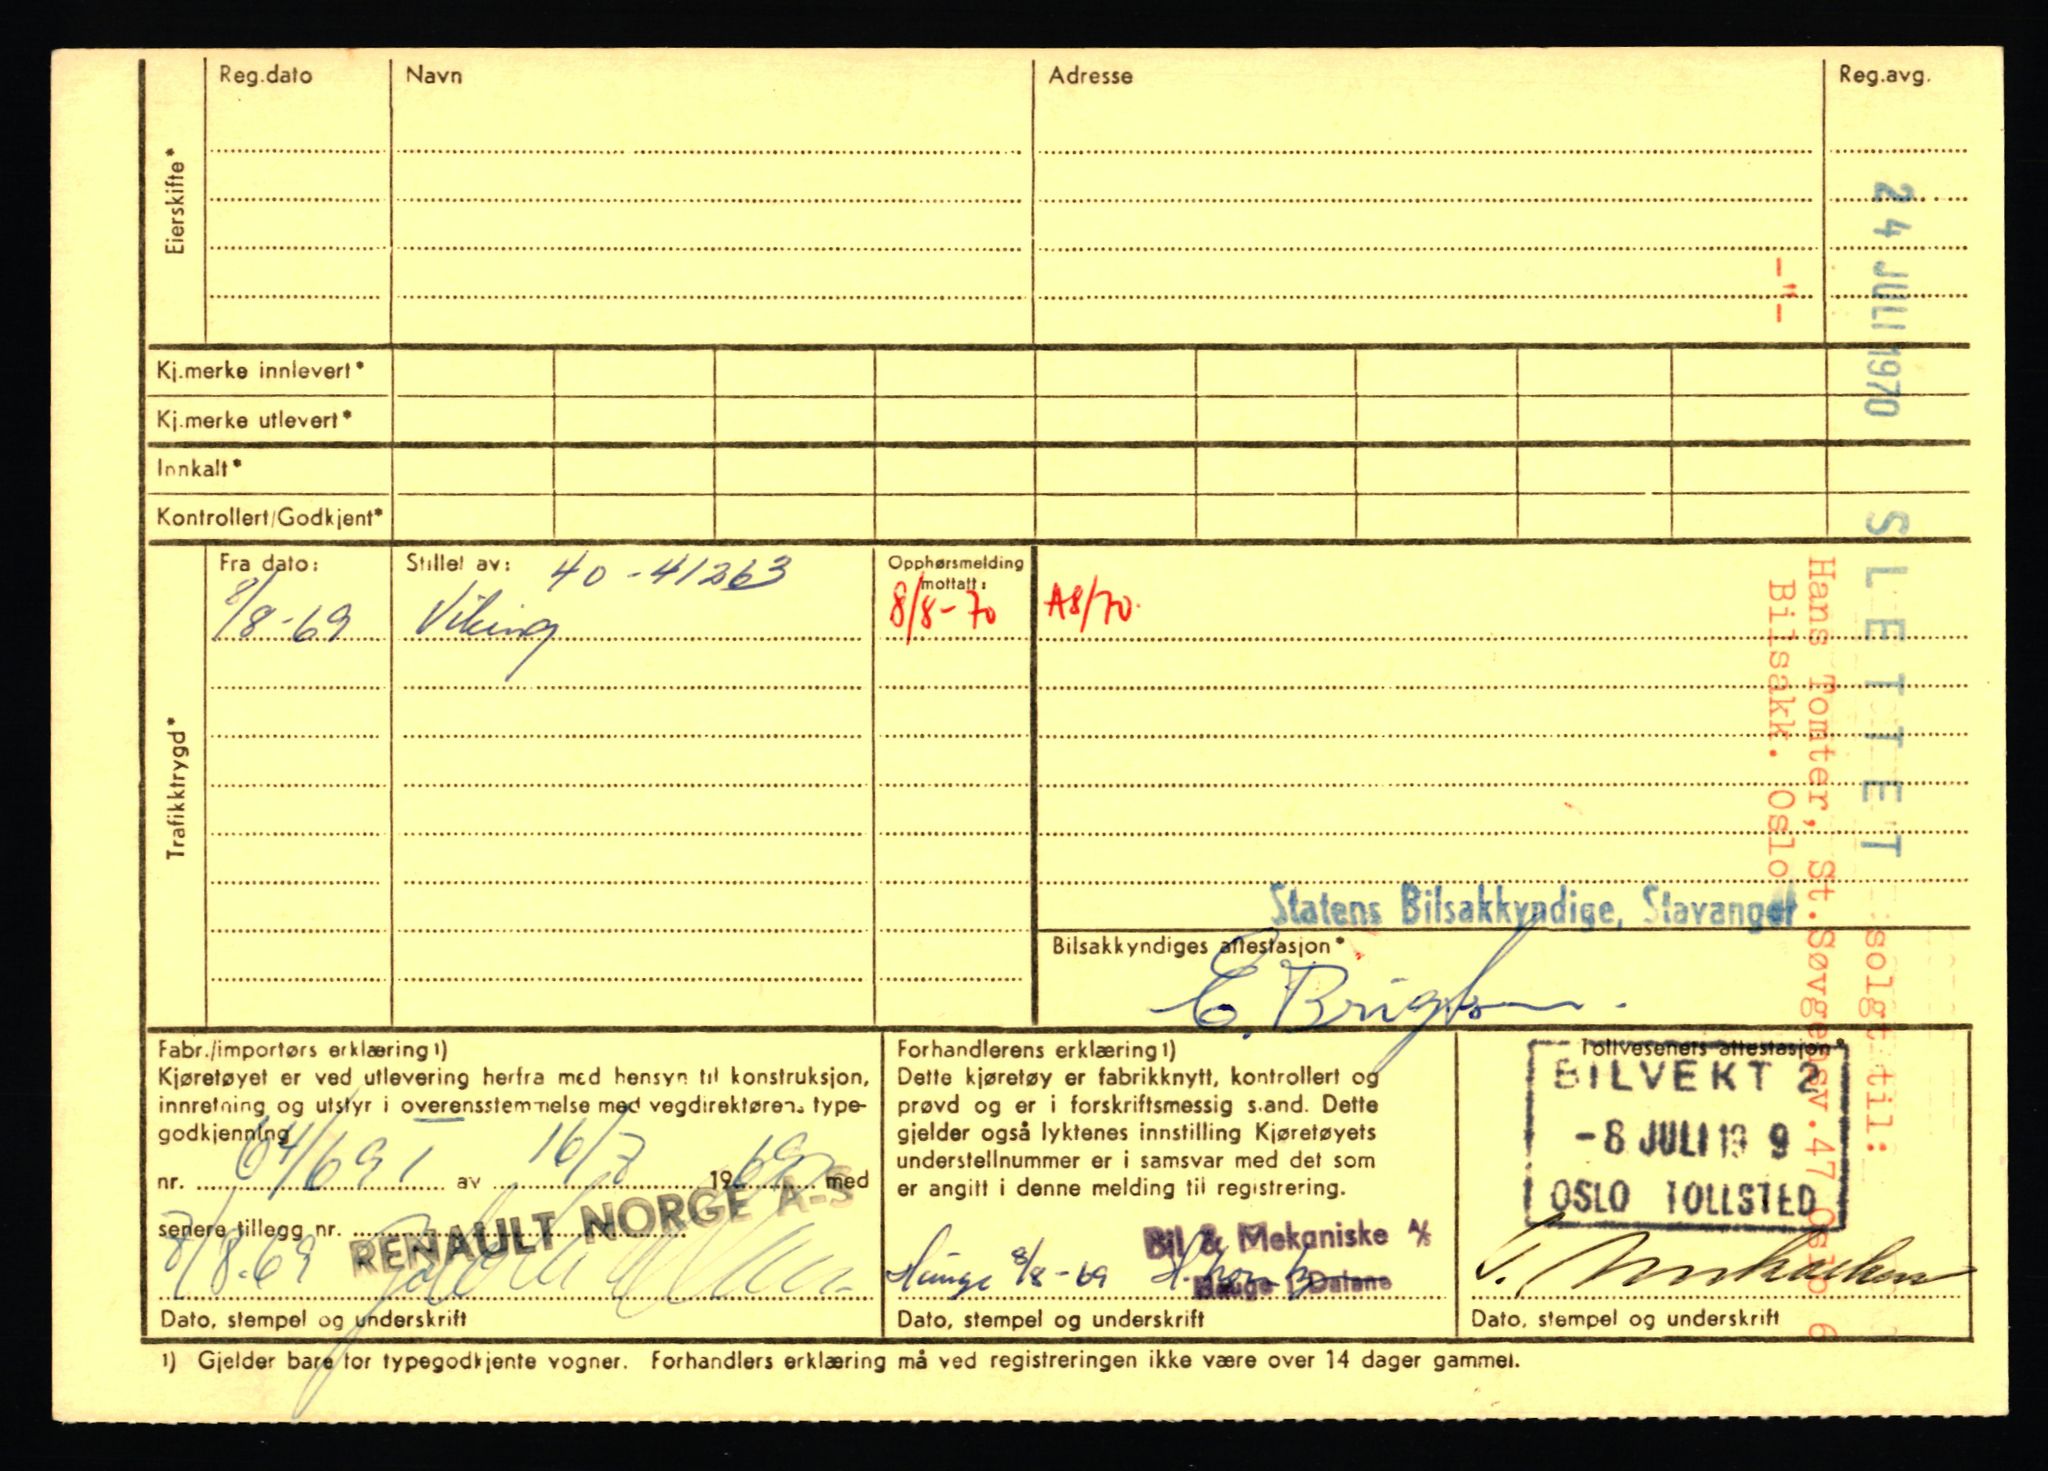 Reg.dato Navn Adresse Reg.avg.
Eierskifte*
Kj.merke innlevert*
Kj.merke utlevert*
Innkalt*
Kontrollert/Godkjent*
Trafikktrygd*
Fra dato: Stillet av: 40-41263 Opphørsmelding mottatt:
8/8-69 Viking 8/8-70 A8/70.
24 JULI 1970 SLETTET
solgt til:
Hans Tomter, St.Søvgensv.47 Oslo 6
Bilsakk. Oslo
-"-
Statens Bilsakkyndige, Stavanger
Bilsakkyndiges attestasjon*
Fabr./importørs erklæring1)
Kjøretøyet er ved utlevering herfra med hensyn til konstruksjon,
innretning og utstyr i overensstemmelse med vegdirektørens type-
godkjenning
nr. 64/69 1 av 16/7 1969 med
senere tillegg nr.
RENAULT NORGE A-S
8/8-69
Dato, stempel og underskrift
Forhandlerens erklæring1)
Dette kjøretøy er fabrikknytt, kontrollert og
prøvd og er i forskriftsmessig s.and. Dette
gjelder også lyktenes innstilling Kjøretøyets
understellnummer er i samsvar med det som
er angitt i denne melding til registrering.
Bil & Mekaniske A/S
Hauge 8/8-69
Hauge i Dalane
Dato, stempel og underskrift
Tollvesenets attestasjon*
BILVEKT 2
-8 JULI 19 9
OSLO TOLLSTED
Dato, stempel og underskrift
1) Gjelder bare for typegodkjente vogner. Forhandlers erklæring må ved registreringen ikke være over 14 dager gammel.